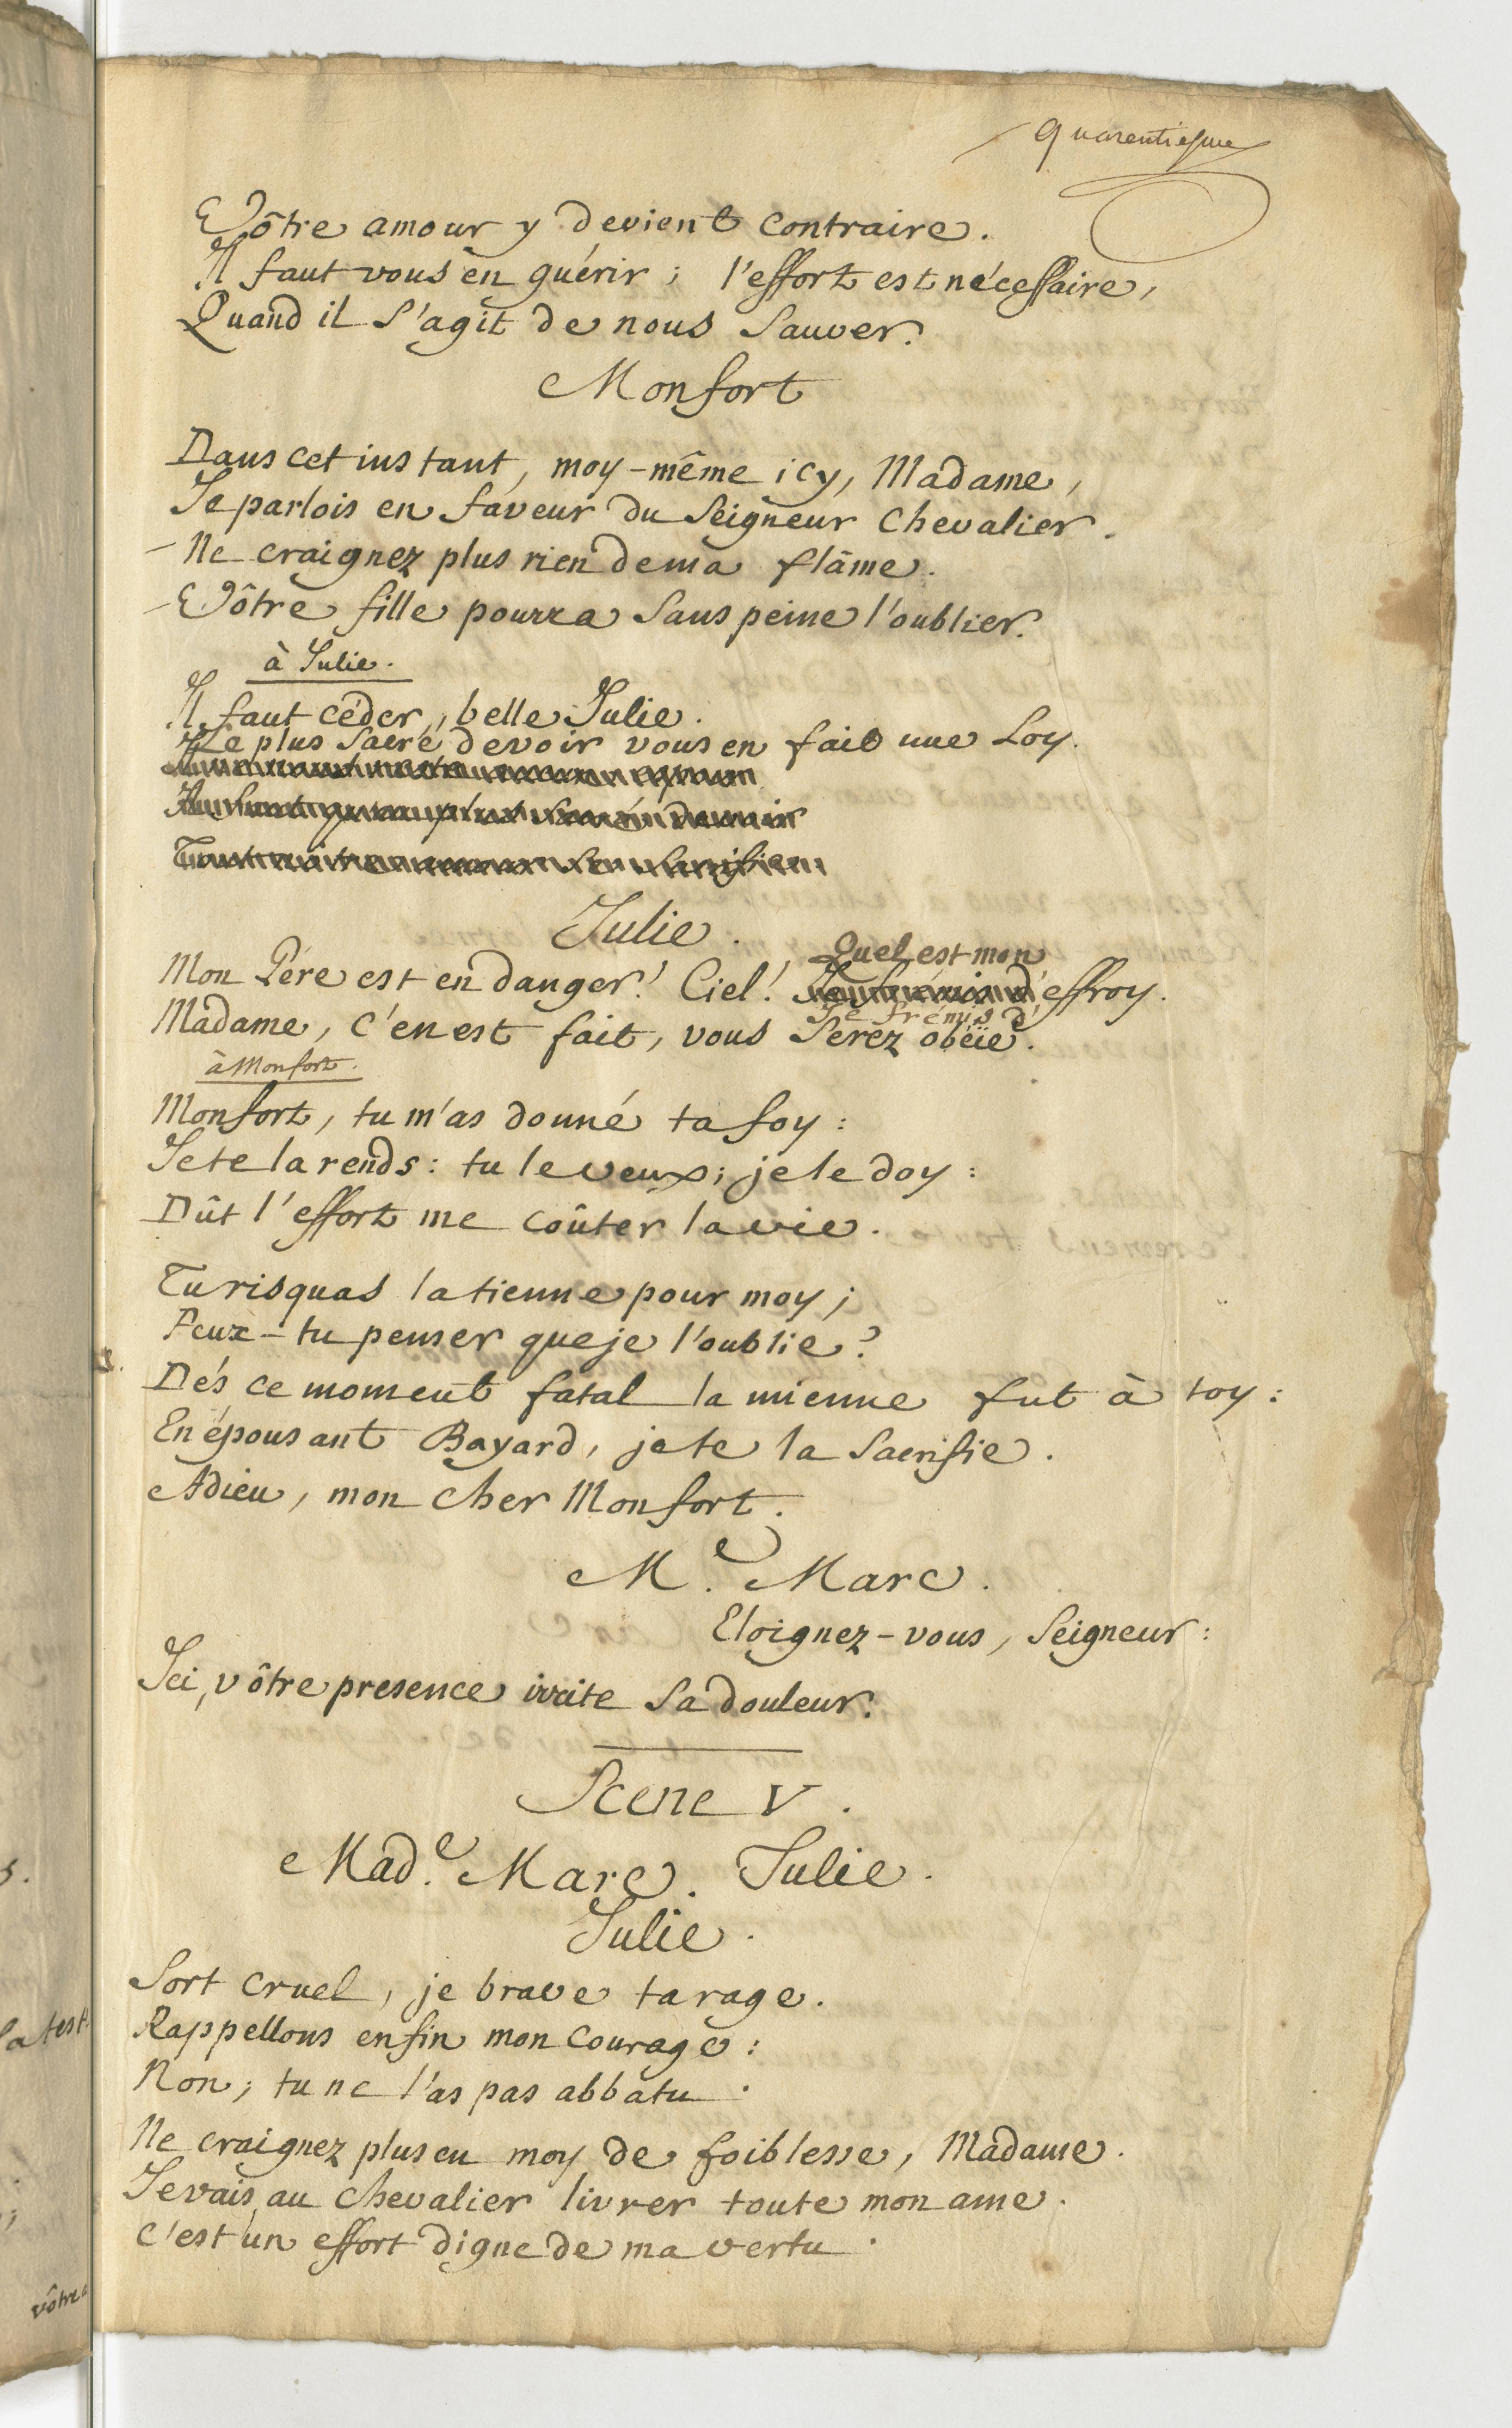 quarentiesme
Vôtre amour y devient contraire.
Il faut vous en guérir; l'effort est nécessaire,
Quand il s'agit de nous sauver.
Monfort
Dans cet instant, moy-même icy, Madame,
Je parlois en faveur du Seigneur Chevalier.
Ne craignez plus rien de ma flâme.
Vôtre fille pourra sans peine l'oublier.
à Julie.
Il faut céder, belle Julie.
Le plus sacré devoir vous en fait une Loy.
Julie.
Quel est mon
Mon Pére est en danger! Ciel! Je frémis d'effroy.
Je frémis d'
Madame, c'en est fait, vous serez obéïe.
à Monfort.
Monfort, tu m'as donné ta foy:
Je te la rends: tu le veux; je le doy:
Dût l'effort me coûter la vie.
Tu risquas la tienne pour moy;
Peux-tu penser que je l'oublie?
Dés ce moment fatal la mienne fut à toy:
En épousant Bayard, je te la sacrifie.
Adieu, mon cher Monfort.
Me. Marc.
Eloignez-vous, Seigneur:
Ici, vôtre presence irrite sa douleur.
Scene V.
Made. Marc. Julie.
Julie.
Sort cruel, je brave ta rage.
Rappellons enfin mon courage:
Non; tu ne l'as pas abbatu.
Ne craignez plus en moy de foiblesse, Madame.
Je vais au Chevalier livrer toute mon ame.
C'est un effort digne de ma vertu.
vôtre